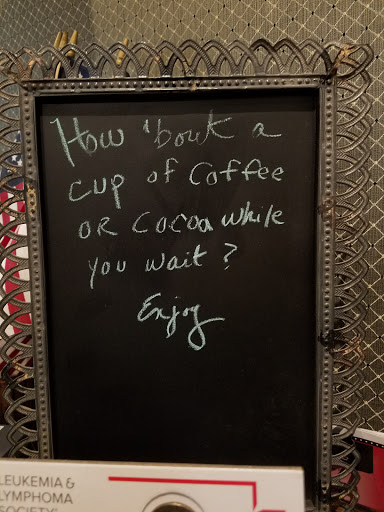 How 'bout a
cup of coffee
OR Cocoa while
you wait?
Enjoy
LEUKEMIA &
LYMPHOMA
SOCIETY